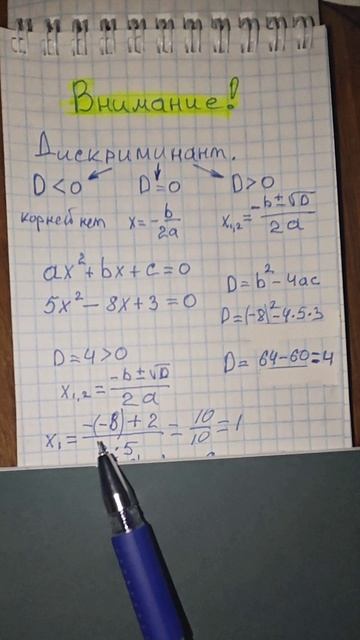 Внимание!
Дискриминант.
D<0 D=0 D>0
корней нет x=-b/2a x₁,₂=(-b±√D)/2a
ax²+bx+c=0
5x²-8x+3=0
D=b²-4ac
D=(-8)²-4·5·3
D=64-60=4
D=4>0
x₁,₂=(-b±√D)/2a
x₁=(-(-8)+2)/·5=10/10=1